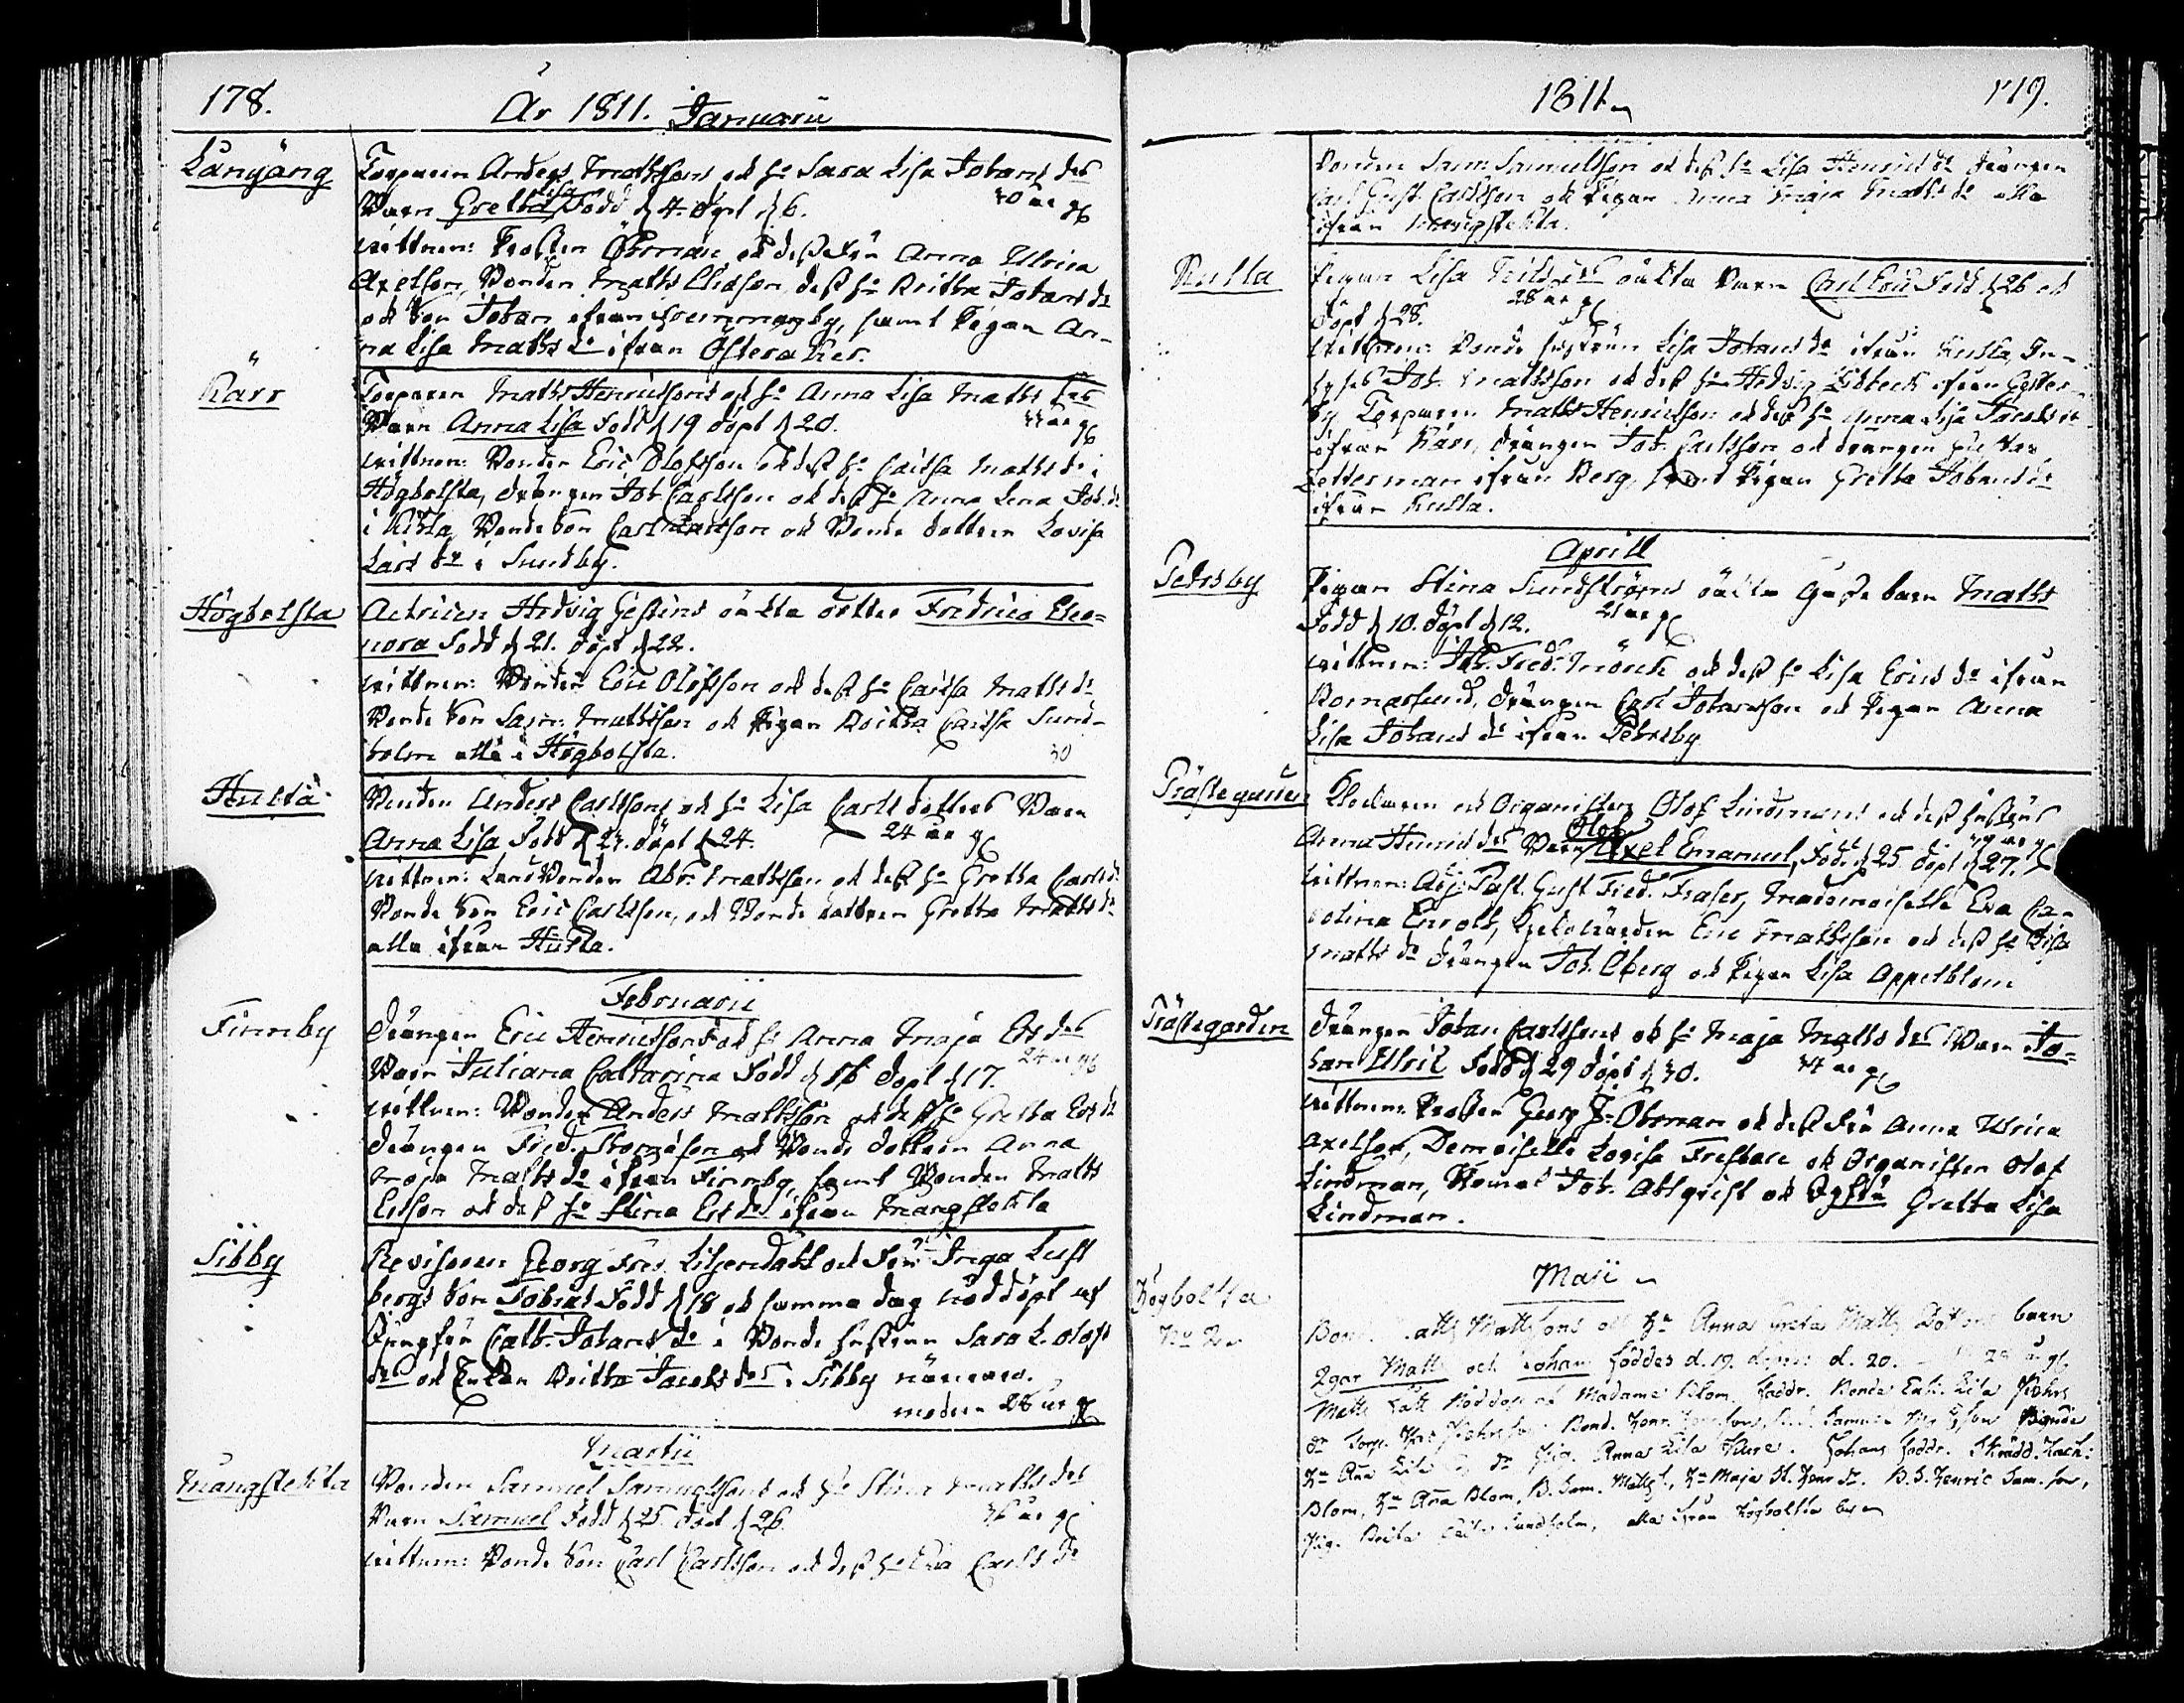 178.
År 1811. Januarii
Långäng
Torparen Anders Mathssons och h:o Sara Lisa Johans d:rs
Barn Gretha Lisa Född d 4. döpt d 6. 30 år gl
Wittnen: Prosten Öhrman och dess Fru Anna Ulrica
Axelson, Bonden Maths Ersson, dess h:o Britha Johans d:r
och Son Johan ifrån, samt Pigan An-
na Lisa Maths d:r ifrån Österåker.
Kärr
Torparen Maths Henricssons och h:o Anna Lisa Maths d:rs
Barn Anna Lisa Född d 19 döpt d 20. år gl
Wittnen: Bonden Eric Olofsson och dess h:o Caisa Maths d:r i
Högbolsta, drängen Joh Carlsson och dess h:o Anna Lena Joh. d:r
i, Bonde Son Carl Carlsson och Bonde dottren Lovisa
Lars d:r i Sundby.
Högbolsta
Actricen Hedvig Gestins oäkta dotter Fredrica Eleo-
nora Född d 21. döpt d 22.
Wittnen: Bonden Eric Olofsson och dess h:o Caisa Maths d:r
Bonde Son Sam: Mathsson och Pigan Britha Caisa Sund-
holm alla i Högbolsta. 30
Husta
Bonden Anders Carlssons och h:o Lisa Carls dotters Barn
Anna Lisa Född d 23. döpt d 24. 24 år gl
Wittnen: Bonden Abr: Mathsson och dess h:o Gretha Carls d:r
Bonde Son Eric Carlsson, och Bonde dottren Gretha Maths d:r
alla ifrån Husta.
Februarii
Finnby
Drängen Eric Henricssons och h:o Anna Maja Ers d:rs
Barn Juliana Catharina Född d 16 döpt d 17. 24 år gl
Wittnen: Bonden Anders Mathsson och dess h:o Gretha Ers d:r
drängen Fred. och Bonde dottren Anna
Maja Maths d:r ifrån Finnby, samt Bonden Maths
Ersson och dess h:o Stina Ers d:r ifrån Mangstekta
Sibby
Revisoren Georg Fred. Liljendahl och Fru Inga Lust
bergs Son Tobias Född d 18 och samma dag nöddöpt af
Jungfru Cath: Johans d:r i Bonde hustrun Sara L. Olofs
d:rs och Enkan Britha Jacobs d:rs i Sibby närwaro.
modren 26 år gl
Martii
Mangstekta
Bonden Samuel Samuelssons och h:o Stina Maths d:rs
Barn Samuel Född d 25. döpt d 26. 36 år gl
Wittnen: Bonde Son Carl Carlsson och dess h:o Eva Carls d:r
1811
179.
Bonden Sam: Samuelsson och dess h:o Lisa Henrics d:r drängen
Carl Gust Carlsson och Pigan Anna Maja Maths d:r alla
ifrån Mangstekta.
Husta
Pigan Lisa oäkta Barn Carl Eric Född d 26 och
döpt d 28. 28 år gl
Wittnen: Bonde hustrun Lisa Johans d:r ifrån Husta, In-
hyses Joh. Mathsson och dess h:o Hedvig Libbeck ifrån Gester-
by, Torparen Maths Henricsson och dess h:o Anna Lisa
ifrån Kärr, drängen Joh. Carlsson och drängen Gustav
Zetterman ifrån Berg, samt Pigan Gretha Johans d:r
ifrån Husta.
Aprill
Petrsby
Pigan Stina Sundströms oäkta Gosse barn Maths
Född d 10. döpt d 12. 21 år gl
Wittnen: Joh. Fred. Mörck och dess h:o Lisa Erics d:r ifrån
Bomarsund, drängen Carl Johansson och Pigan Anna
Lisa Johans d:r ifrån Petrsby
Prästegården
Klockaren och Organisten Olof Lindmans och dess hustrus
Anna Henrics d:rs Barn Olof Axel Emanuel, Född d 25 döpt d 27. 39 år gl
Wittnen: Adj: Past. Gust Fred. Fraser, Mademoiselle Eva Ca-
rolina Enroth, Kyrkowärden Eric Mathsson och dess h:o Lisa
Maths d:r drängen Joh. Öberg och Pigan Lisa Appelblom
Prästegården
Drängen Johan Carlssons och h:o Maja Maths d:rs Barn Jo-
han Ulric Född d 29 döpt d 30. 34 år gl
Wittnen: Prosten Georg F: Öhrman och dess Fru Anna Ulrica
Axelson, Demoiselle Lovisa Frestare och Organisten Olof
Lindman, Joh. Ahlqvist och Jgfru Gretha Lisa
Lindman.
Maii
Högbolsta
N:o 2
Bond. Matts Mattssons och h:u Anna Greta Matts Dotters barn
Egar Matts och Johan föddes d. 19. döptes d. 20. 29 år gl.
Matts Nöddop af Madame Blom. Faddr. Bonde Enk: Lisa Johrs
d:r Torp. Bond. Henr. Samuel
H:u Anna Lisa d:r Pig. Anna Lisa. Johans Faddr. Skrädd. Zach:
Blom, H:u Anna Blom, B. Sam. Matts:, H:u Maja St. Henr d:r. B. S. Henric Sam. son,
Pig. Brita Caisa Sundholm, alla ifrån Högbolsta